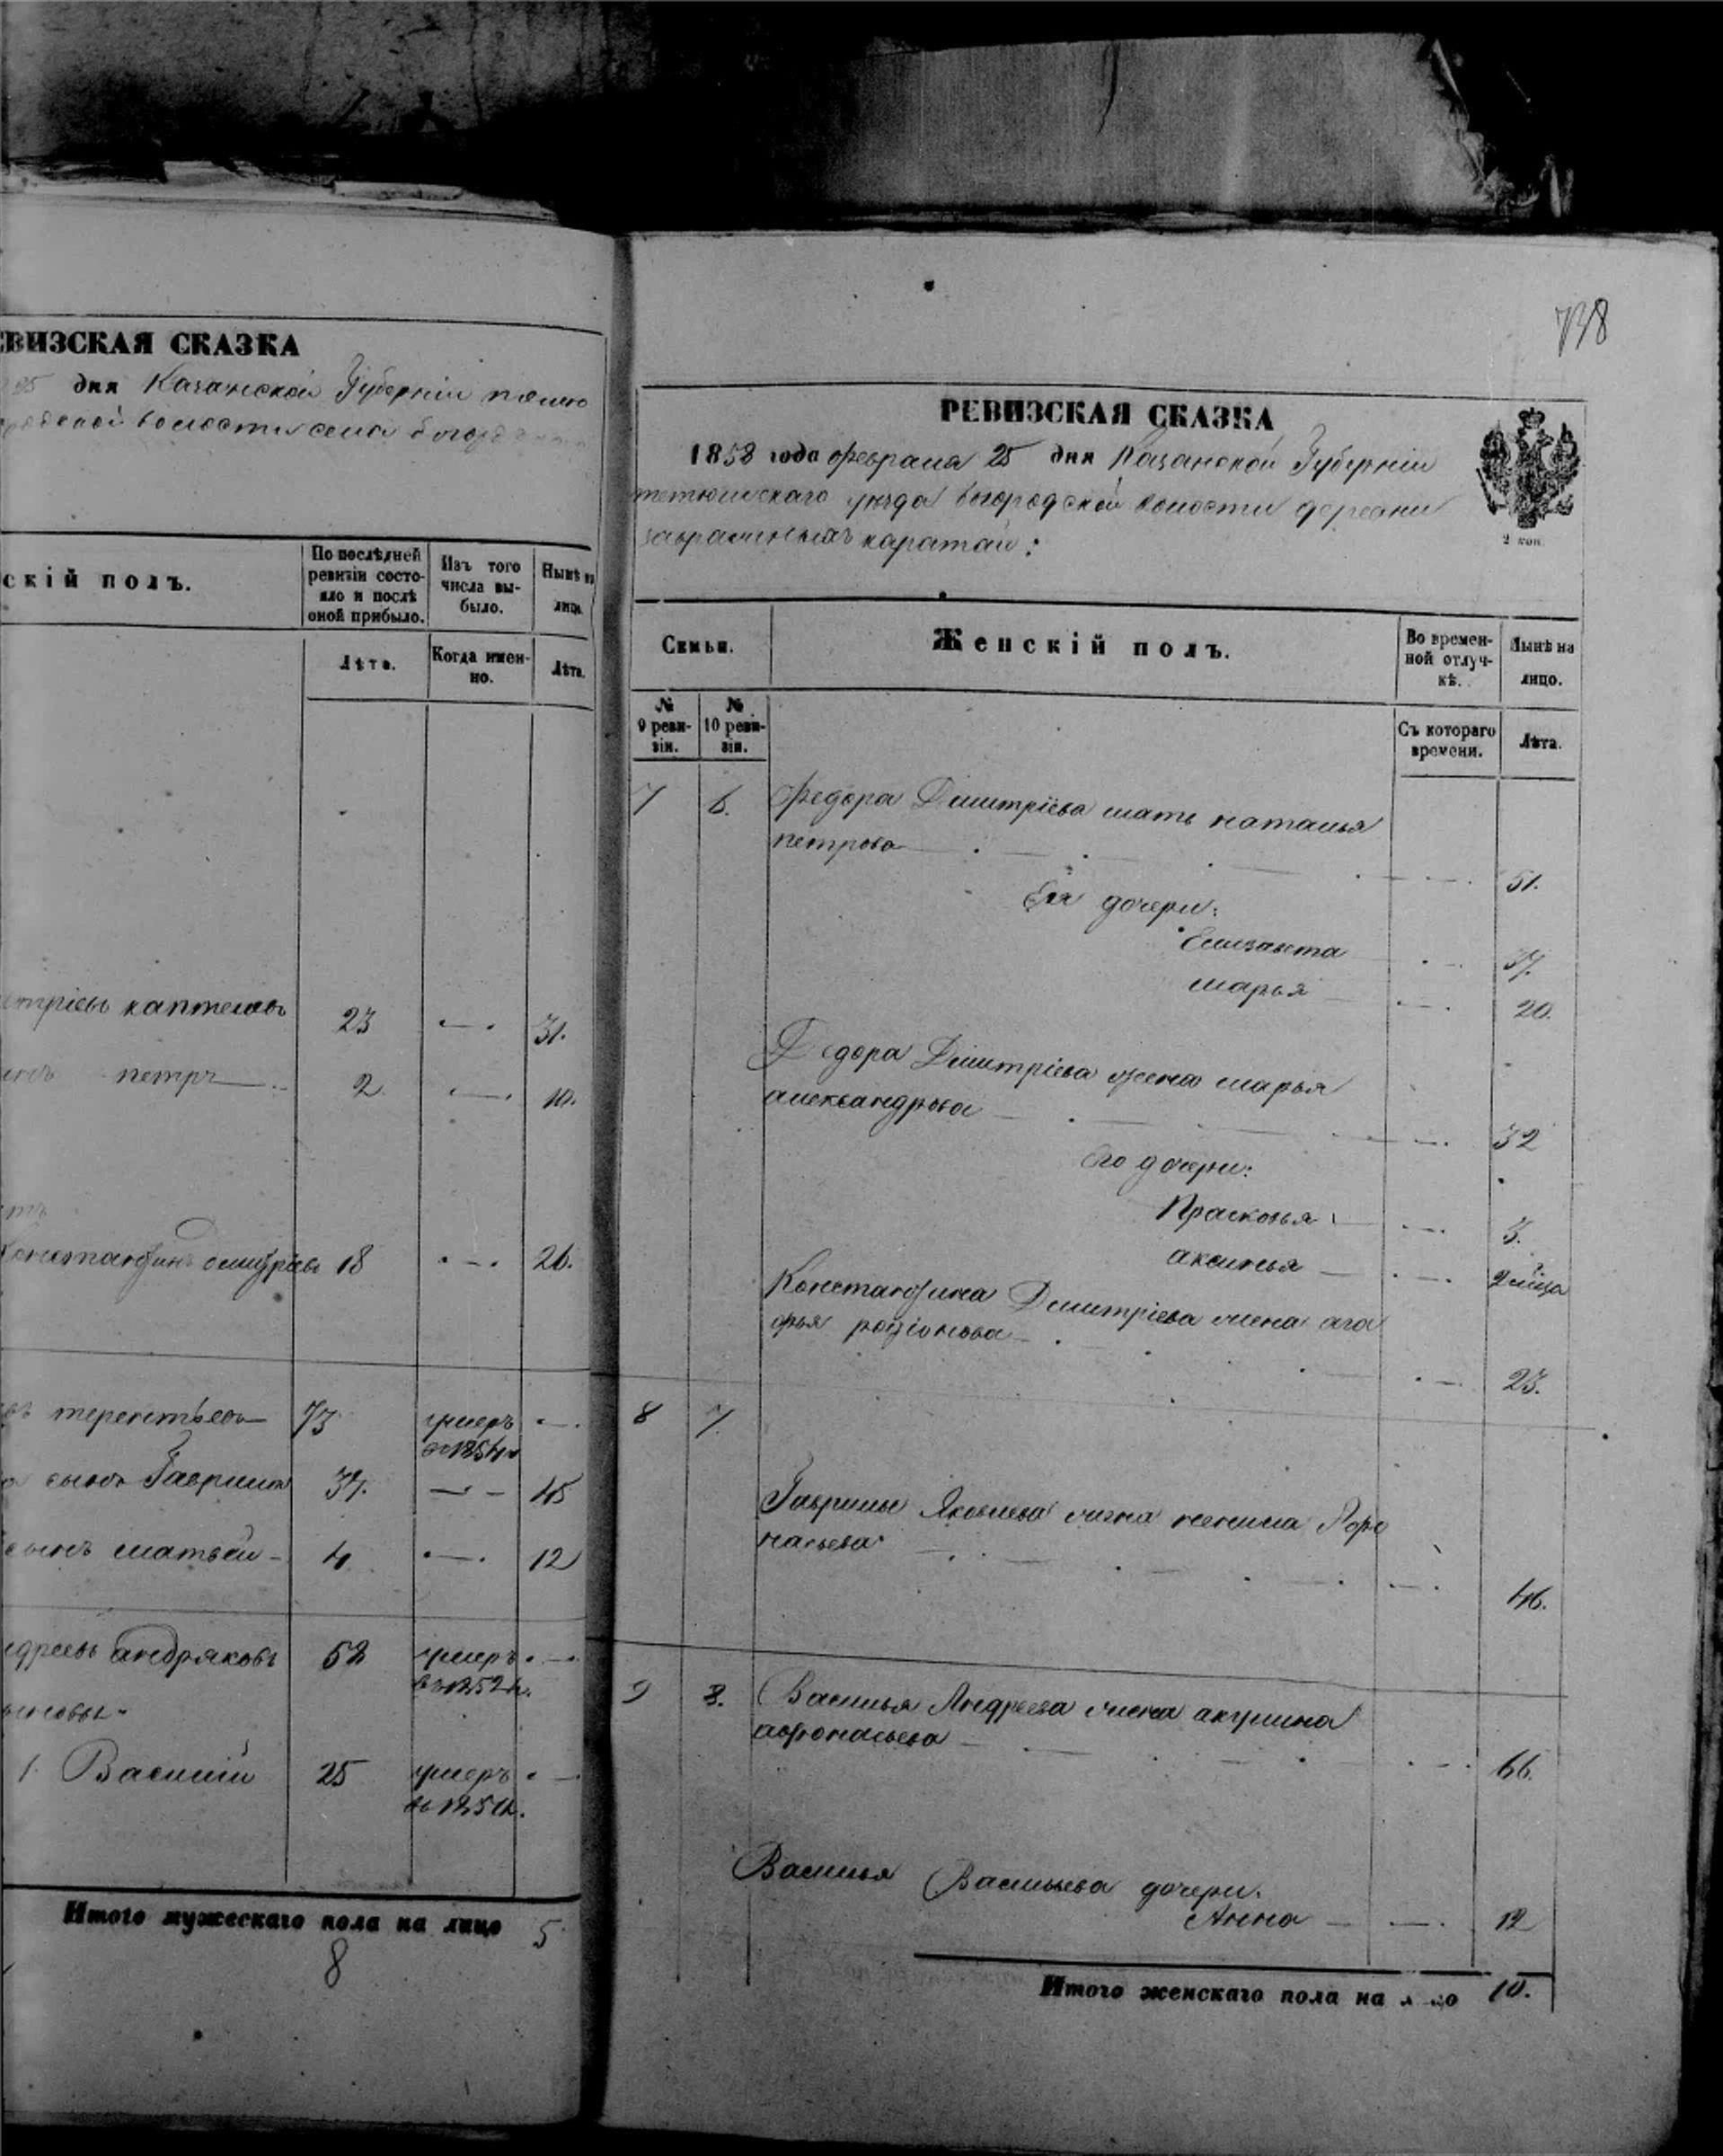 ЕВИЗСКАЯ СКАЗКА
25 дня Казанской Губерніи
волости села
скій полъ.
По послѣдней ревизіи состо-
яло и послѣ
оной прибыло.
Изъ того
числа вы-
было.
Нынѣ на
лицо.
Лѣта.
Когда имен-
но.
Лѣта.
итріевъ каптеловъ 23 31.
петръ 2 10.
Константинъ дмитріевъ 18 26.
терентьевъ 73 умеръ
в 1854
сынъ Гаврила 37. 45
сынъ матвей 4 12
ндреевъ андряковъ 52 умеръ
въ 1852 г.
1. Василій 25 умеръ
въ 185
Итого мужескаго пола на лицо 5
8
738
РЕВИЗСКАЯ СКАЗКА
1858 года февраля 25 дня Казанской Губерніи
тетюшскаго уѣзда богородской волости деревни
каратай:
2 коп.
Семьи.
Женскій полъ.
Во времен-
ной отлуч-
кѣ.
Нынѣ на
лицо.
№
9 реви-
зіи.
№
10 реви-
зіи.
Съ котораго
времени.
Лѣта.
7 6. Федора Дмитріева мать наталья
петрова 51.
Ея дочери:
Елизавета 37.
марья 20.
Федора Дмитріева жена марья
александрова 32
Его дочери:
Прасковья 3.
аксинья 2 м͠ца
Константина Дмитріева жена ага
фья родіонова 23.
8 7.
Гаврилы Яковлева жена
насьева 46.
9 8. Василья Андреева жена акулина
афонасьева 66.
Василья Васильева дочери.
Анна 12
Итого женскаго пола на лицо 10.